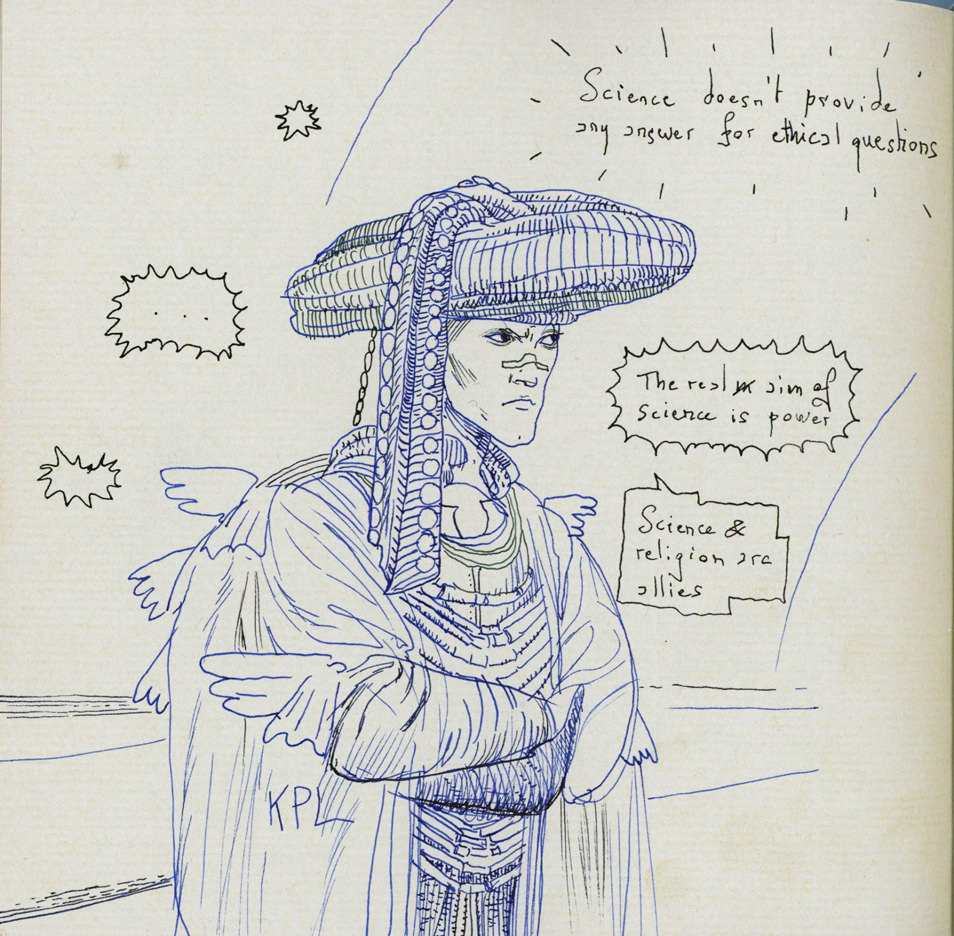 Science doesn't provide
any answer for ethical questions
. . .
The real aim of
science is power
Science &
religion are
allies
KPL